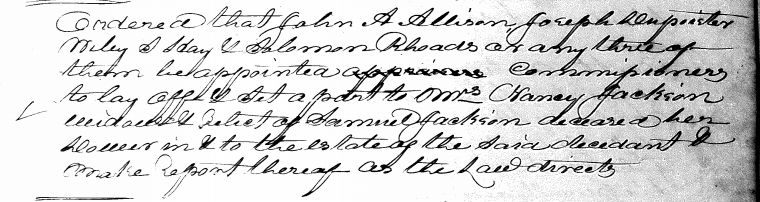 Ordered that John A Allison, Joseph Dupoister
Wiley S Hay & Solomon Rhoads or any three of
them be appointed appriners Commissioners
to lay off & Set a part to Mrs Nancy Jackson
widow & Relict of Samuel Jackson deceased her
Dower in & to the estate of the Said decedant &
make Report thereof as the Law directs